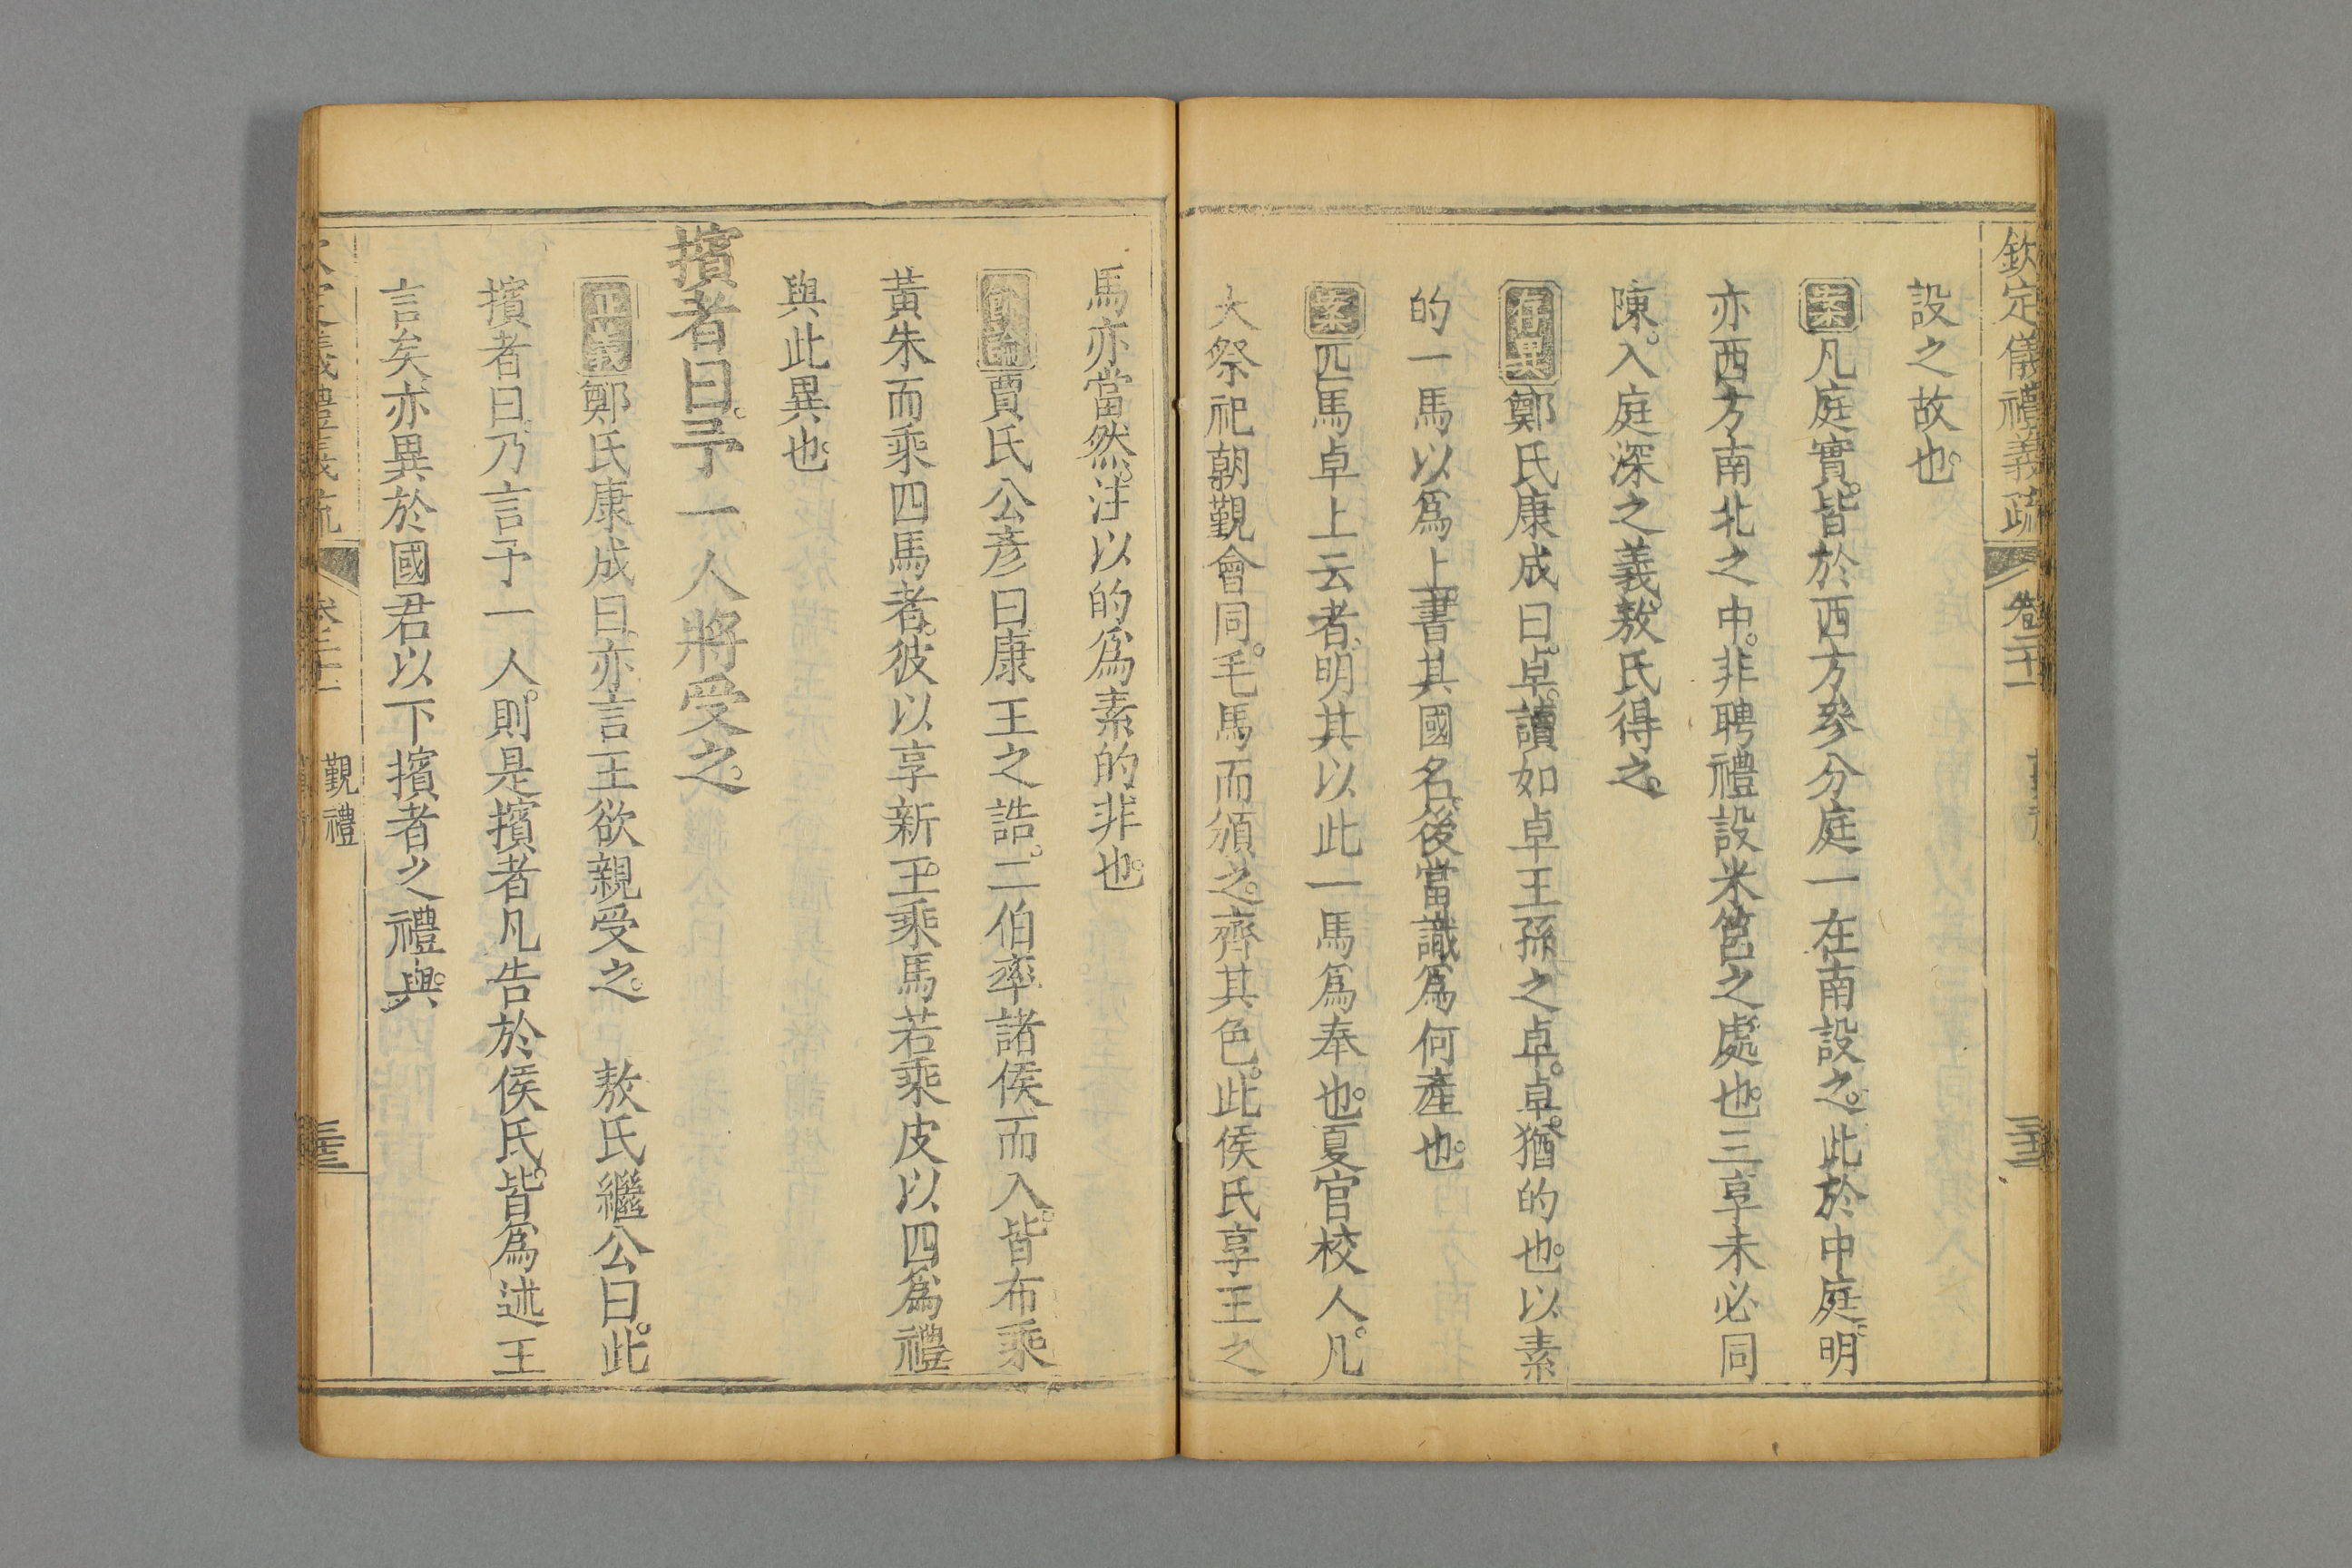 欽定儀禮義疏 卷二十一
設之故也。
案凡庭實。皆於西方參分庭一在南設之。此於中庭。明
亦西方南北之中。非聘禮設米筥之處也。三享未必同
陳。入庭深之義。敖氏得之。
存異鄭氏康成曰。卓。讀如卓王孫之卓。卓。猶的也。以素
的一馬以爲上。書其國名。後當識爲何產也。
案匹馬卓上云者。明其以此一馬爲奉也。夏官校人。凡
大祭祀朝覲會同。毛馬而頒之。齊其色。此侯氏享王之
馬亦當然。注以的爲素的非也。
餘論賈氏公彥曰。康王之誥。二伯率諸侯而入。皆布乘
黃朱而乘四馬者。彼以享新王。乘馬若乘皮以四爲禮
與此異也。
擯者曰。予一人將受之。
正義鄭氏康成曰。亦言王欲親受之。 敖氏繼公曰。此
擯者曰。乃言予一人。則是擯者凡告於侯氏。皆爲述王
言矣。亦異於國君以下擯者之禮與。
覲禮